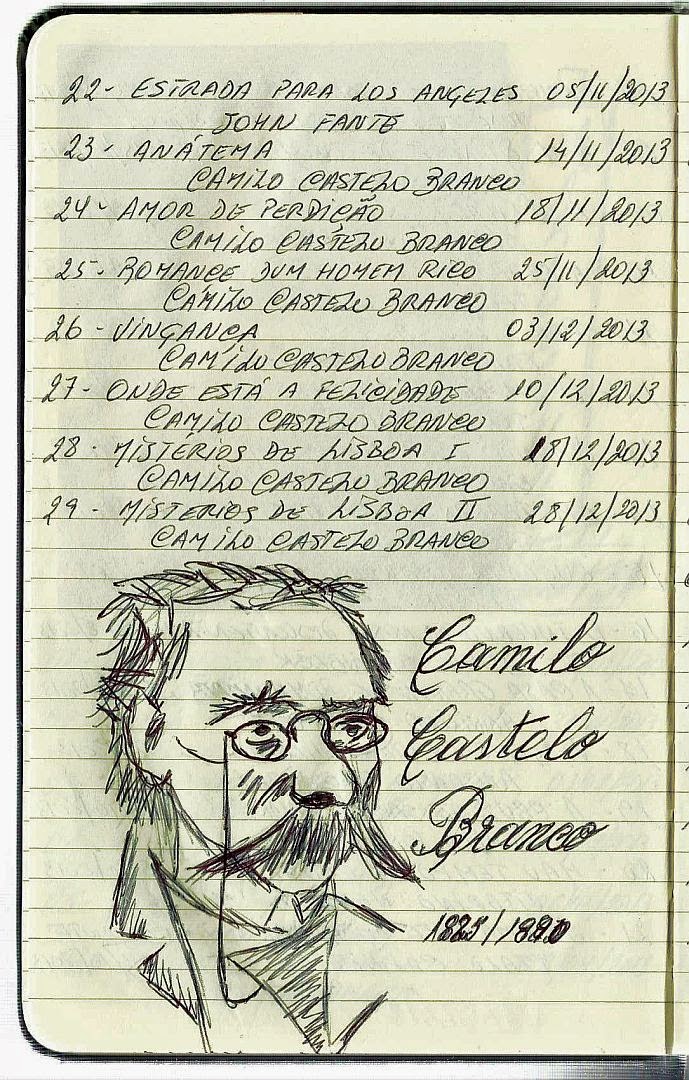 22- ESTRADA PARA LOS ANGELES 05/11/2013
JOHN FANTE
23- ANÁTEMA 14/11/2013
CAMILO CASTELO BRANCO
24- AMOR DE PERDIÇÃO 18/11/2013
CAMILO CASTELO BRANCO
25- ROMANCE DUM HOMEM RICO 25/11/2013
CAMILO CASTELO BRANCO
26- VINGANCA 03/12/2013
CAMILO CASTELO BRANCO
27- ONDE ESTÁ A FELICIDADE 10/12/2013
CAMILO CASTELO BRANCO
28- MISTÉRIOS DE LISBOA I 18/12/2013
CAMILO CASTELO BRANCO
29- MISTERIOS DE LISBOA II 28/12/2013
CAMILO CASTELO BRANCO
Camilo
Castelo
Branco
1825/1890